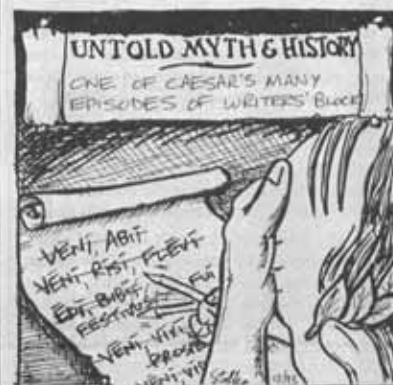 UNTOLD MYTH & HISTORY
ONE OF CAESAR'S MANY
EPISODES OF WRITERS' BLOCK
VENI, ABIT
VENI, RISI, FLEVI
FUI
EDI, BIBIT
FESTIVUS
VENI, VIVI,
VENI, VI